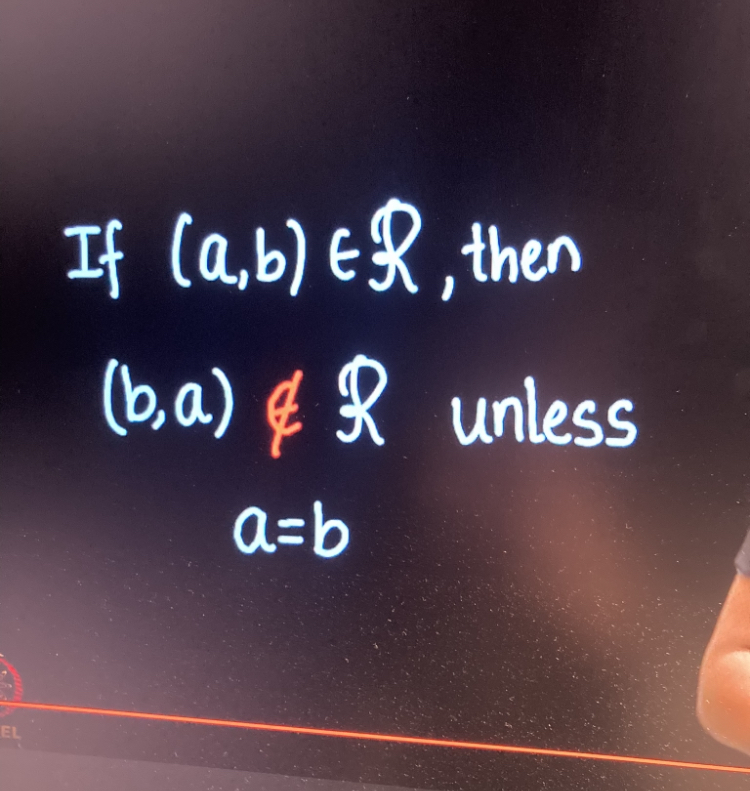 If (a,b) ∈ ℛ, then
(b,a) ∉ ℛ unless
a=b
EL